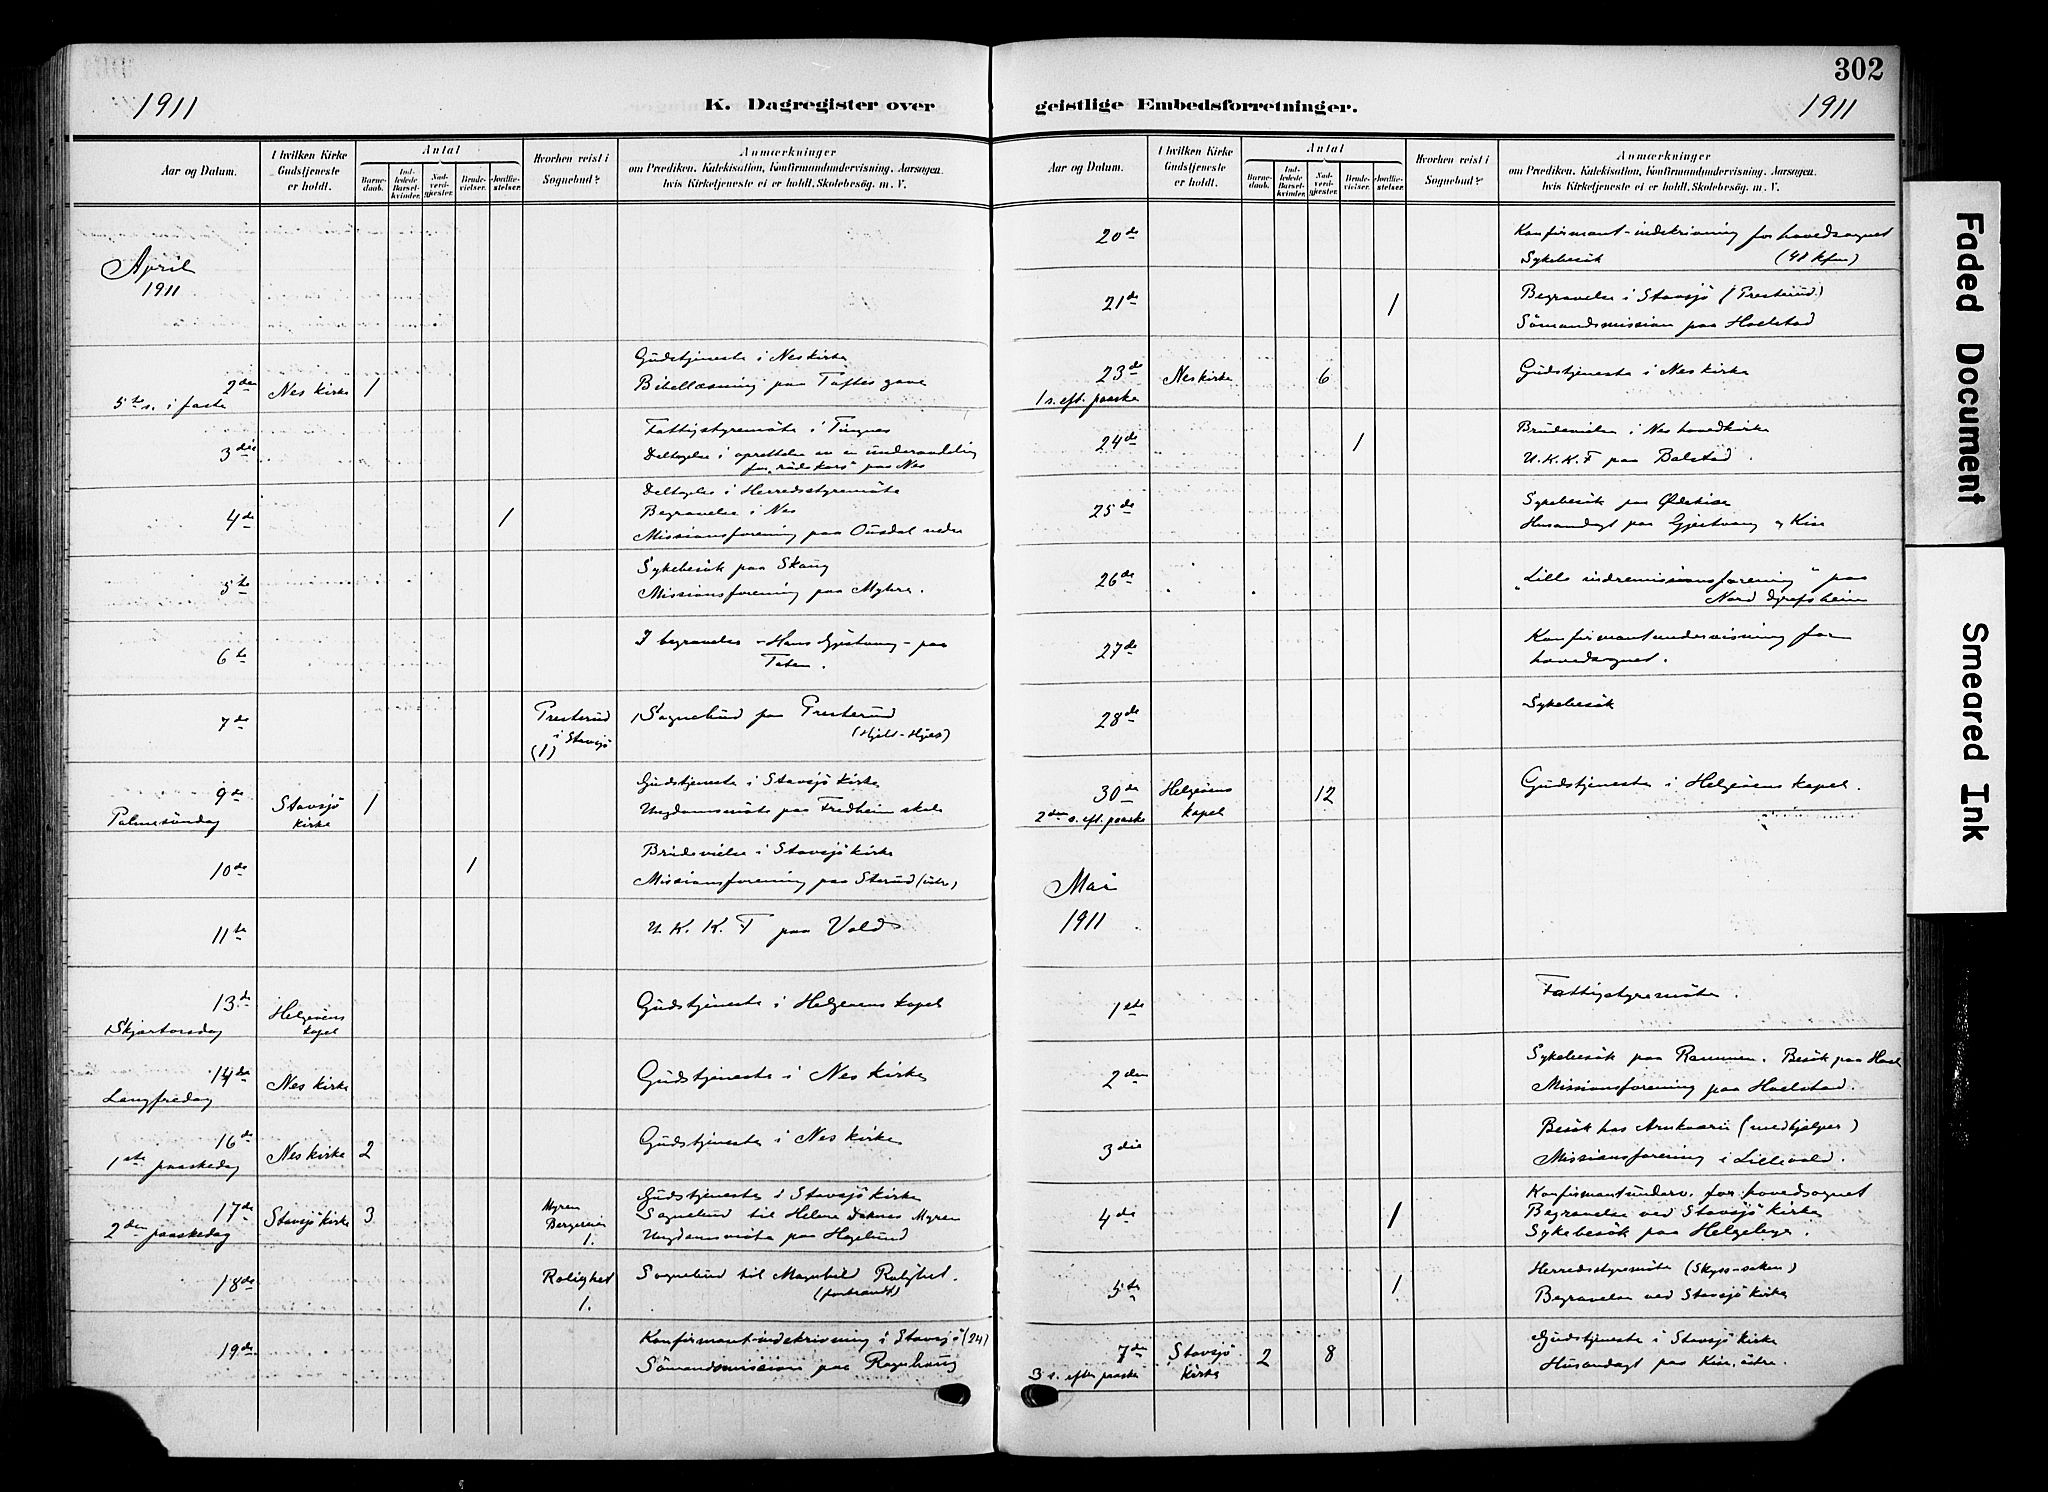 302
1911
K. Dagregister over
geistlige Embedsforretninger.
1911
Aar og Datum.
I hvilken Kirke Gudstjeneste er holdt.
Antal
Barnedaab.
Indledede Barselkvinder.
Nadverdgjester.
Brudevielser.
Jordfæstelser.
Hvorhen reist i Sognebud?
Anmærkninger
om Prædiken. Katekisation, Konfirmandundervisning. Aarsagen,
hvis Kirketjeneste ei er holdt. Skolebesøg. m. V.
April
1911
2den
5te s. i faste
Nes kirke
1
Gudstjeneste i Nes kirke
Bibellæsning paa Toftes gave
3die
Fattigstyremöte i Tingnes
Deltagelse i oprettelse av en underavdeling
for "röde kors" paa Nes
4de
1
Deltagelse i Herredsstyremöte
Begravelse i Nes
Missionsforening paa Ousdal nedre
5te
Sykebesök paa Skaug
Missionsforening paa Myhre.
6te
I begravelse - Hans Gjestvang - paa
Toten.
7de
Presterud
i Stavsjö
(1)
Sognebud paa Presterud
9de
Palmesöndag
Stavsjö
Kirke
1
Gudstjeneste i Stavsjö kirke
Ungdomsmöte paa Fredheim skole
10de
1
Brudevielse i Stavsjö kirke
Missionsforening paa Sterud (östre)
11te
U. K. K. F paa Vold
13de
Skjærtorsdag
Helgeöens
kapel
Gudstjeneste i Helgeöens kapel
14de
Langfredag
Nes kirke
Gudstjeneste i Nes kirke
16de
1ste paaskedag
Nes kirke
2
Gudstjeneste i Nes kirke
17de
2den paaskedag
Stavsjö kirke
3
Myren
1.
Gudstjeneste i Stavsjö kirke
Sognebud til Helene Myren
Ungdomsmöte paa Hagelund
18de
Rolighet
1.
Sognebud til Magnhild Rolighet.
19de
Konfirmant-indskrivning i Stavsjö (24)
Sömandsmission paa Ragnhaug
Aar og Datum.
I hvilken Kirke Gudstjeneste er holdt.
Antal
Barnedaab.
Indledede Barselkvinder.
Nadverdgjester.
Brudevielser.
Jordfæstelser.
Hvorhen reist i Sognebud?
Anmærkninger
om Prædiken. Katekisation, Konfirmandundervisning. Aarsagen,
hvis Kirketjeneste ei er holdt. Skolebesög. m. V.
20de
Konfirmant-indskrivning for hovedsognet
Sykebesök (48 kfm)
21de
1
Begravelse i Stavsjö (Presterud)
Sömandsmission paa Hoelstad
23de
1 s. eft. paaske
Nes kirke
6
Gudstjeneste i Nes kirke
24de
1
Brudevielse i Nes hovedkirke
U. K. K. F paa Balstad.
25de
Sykebesök paa Ödekise
Husandagt paa Gjestvang og Kise
26de
"Lille indremissionsforening" paa
Nord Dgrefsheim
27de
Konfirmantundervisning for
hovedsognet.
28de
Sykebesök
30de
2den s. eft. paaske
Helgeöens
kapel
12
Gudstjeneste i Helgeöens kapel.
Mai
1911
1ste
Fattigstyremöte.
2den
Sykebesök paa Rammen. Besök paa Hoel
Missionsforening paa Hoelstad.
3die
Besök hos Arnkværn (medhjelper)
Missionsforening i Lillevold.
4de
1
Konfirmantunderv. for hovedsognet
Begravelse ved Stavsjö kirke
Sykebesök paa Helgeberge.
5te
1
Herredsstyremöte (Skyss-saken)
Begravelse ved Stavsjö kirke
7de
3 s. efter paaske
Stavsjö
Kirke
2
8
Gudstjeneste i Stavsjö kirke
Husandagt paa Kise, östre.
Faded Document
Smeared Ink